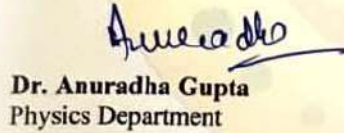 Anuradha
Dr. Anuradha Gupta
Physics Department